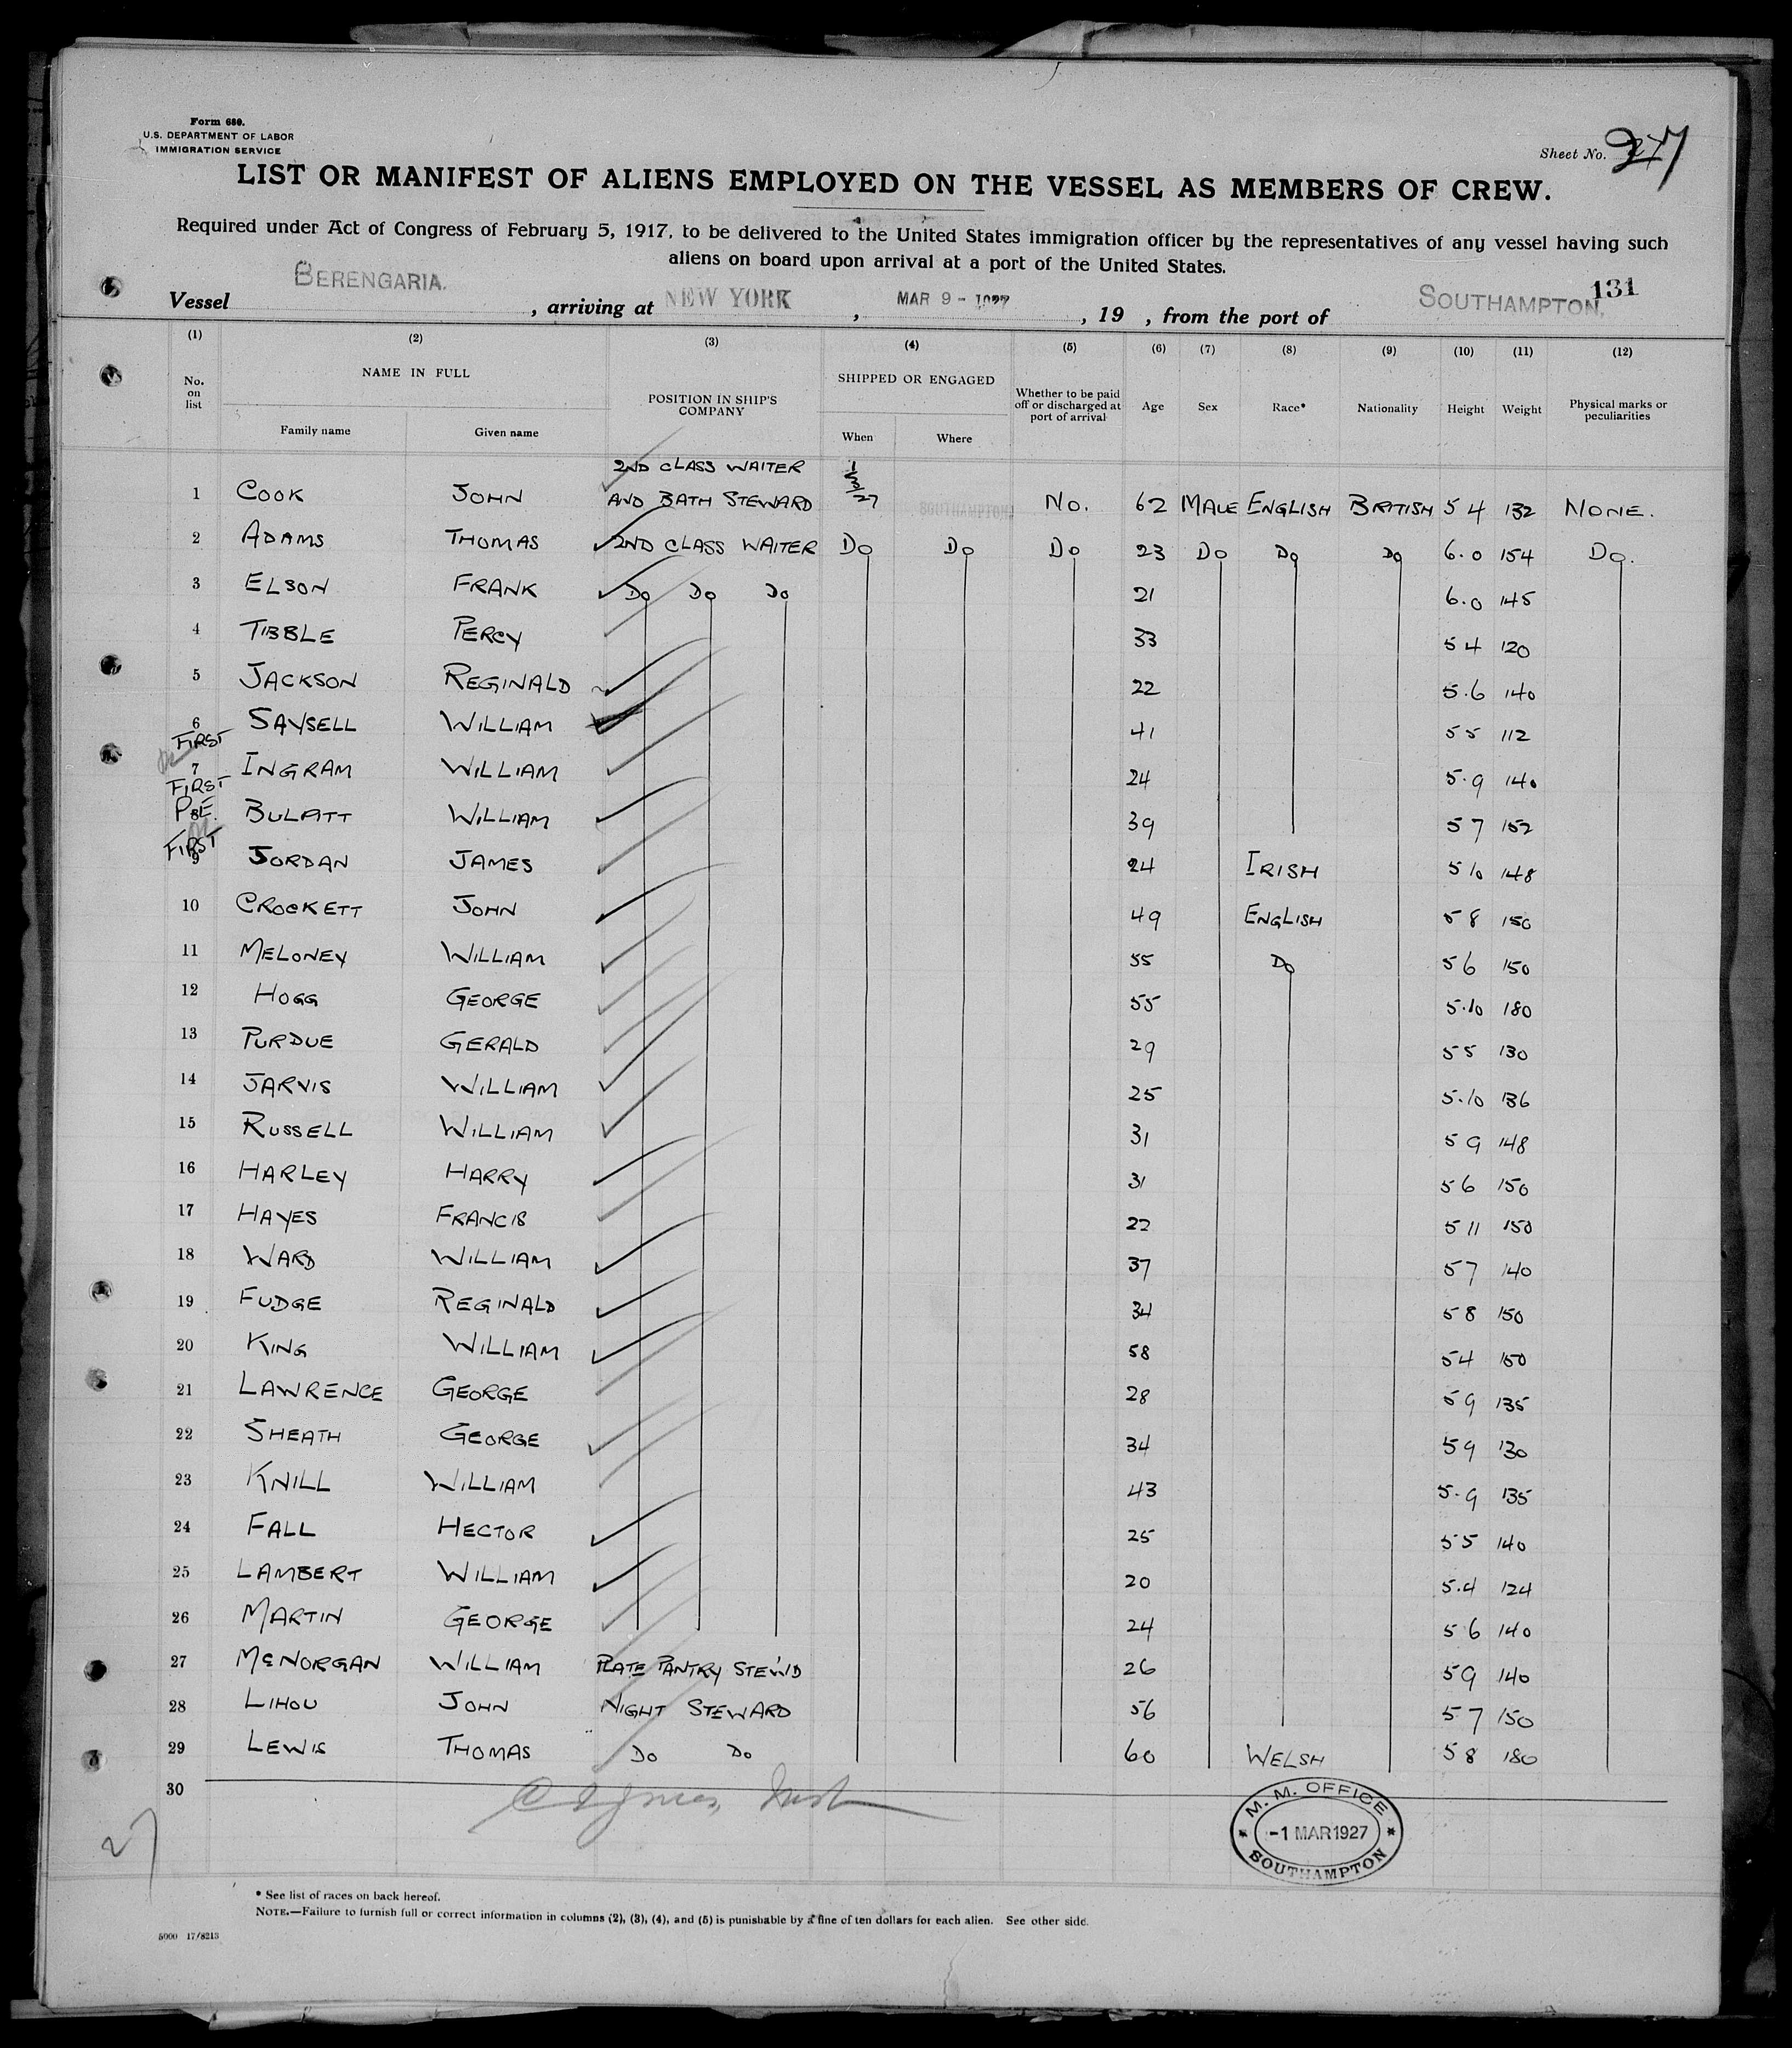 Form 680.
U.S. DEPARTMENT OF LABOR
IMMIGRATION SERVICE
Sheet No. 27
LIST OR MANIFEST OF ALIENS EMPLOYED ON THE VESSEL AS MEMBERS OF CREW.
Required under Act of Congress of February 5, 1917, to be delivered to the United States immigration officer by the representatives of any vessel having such
aliens on board upon arrival at a port of the United States.
131
Vessel BERENGARIA. , arriving at NEW YORK , MAR 9 - 1927 , 19 , from the port of SOUTHAMPTON,
(1) (2) (3) (4) (5) (6) (7) (8) (9) (10) (11) (12)
No. on list NAME IN FULL Family name Given name POSITION IN SHIP'S COMPANY SHIPPED OR ENGAGED When Where Whether to be paid off or discharged at port of arrival Age Sex Race* Nationality Height Weight Physical marks or peculiarities
1 COOK JOHN 2ND CLASS WAITER AND BATH STEWARD 1/3/27 SOUTHAMPTON No. 62 MALE ENGLISH BRITISH 5 4 132 NONE.
2 ADAMS THOMAS 2ND CLASS WAITER Do Do Do 23 Do Do Do 6.0 154 Do.
3 ELSON FRANK Do Do Do 21 6.0 145
4 TIBBLE PERCY 33 5 4 120
5 JACKSON REGINALD 22 5.6 140
6 SAYSELL WILLIAM 41 5 5 112
FIRST
7 INGRAM WILLIAM 24 5.9 140
FIRST
P.E. 8 BULPITT WILLIAM 39 5 7 152
FIRST
9 JORDAN JAMES 24 IRISH 5 10 148
10 CROCKETT JOHN 49 ENGLISH 5 8 150
11 MELONEY WILLIAM 55 Do 5 6 150
12 HOGG GEORGE 55 5.10 180
13 PURDUE GERALD 29 5 5 130
14 JARVIS WILLIAM 25 5.10 136
15 RUSSELL WILLIAM 31 5 9 148
16 HARLEY HARRY 31 5 6 150
17 HAYES FRANCIS 22 5 11 150
18 WARD WILLIAM 37 5 7 140
19 FUDGE REGINALD 34 5 8 150
20 KING WILLIAM 58 5 4 150
21 LAWRENCE GEORGE 28 5 9 135
22 SHEATH GEORGE 34 5 9 130
23 KNILL WILLIAM 43 5.9 135
24 FALL HECTOR 25 5 5 140
25 LAMBERT WILLIAM 20 5.4 124
26 MARTIN GEORGE 24 5 6 140
27 McNORGAN WILLIAM PLATE PANTRY STEW'D 26 5 9 140
28 LIHOU JOHN NIGHT STEWARD 56 5 7 150
29 LEWIS THOMAS Do Do 60 WELSH 5 8 180
30
27
M. M. OFFICE
-1 MAR 1927
SOUTHAMPTON
* See list of races on back hereof.
NOTE.—Failure to furnish full or correct information in columns (2), (3), (4), and (5) is punishable by a fine of ten dollars for each alien. See other side.
5000 17/8213